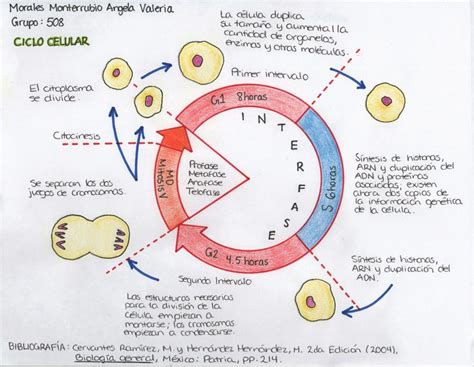 Morales Monterrubio Angela Valeria
Grupo: 508
CICLO CELULAR
La célula duplica
su tamaño y aumenta la
cantidad de organelos,
enzimas y otras moléculas.
El citoplasma
se divide.
Primer intervalo
G1 8 horas
Citocinesis
INTERFASE
Profase
Metafase
Anafase
Telofase
MD
Mitosis
S 6 horas
Síntesis de histonas,
ARN y duplicación del
ADN y proteínas
asociadas, existen
ahora dos copias de
la información genética
de la célula.
Se separan los dos
juegos de cromosomas.
G2 4.5 horas
Síntesis de histonas,
ARN y duplicación del
ADN.
Segundo Intervalo
Las estructuras necesarias
para la división de la
célula empiezan a
montarse; los cromosomas
empiezan a condensarse.
BIBLIOGRAFÍA: Cervantes Ramírez, M. y Hernández Hernández, M. 2da Edición (2004),
Biología general, México: Patria, PP-214.